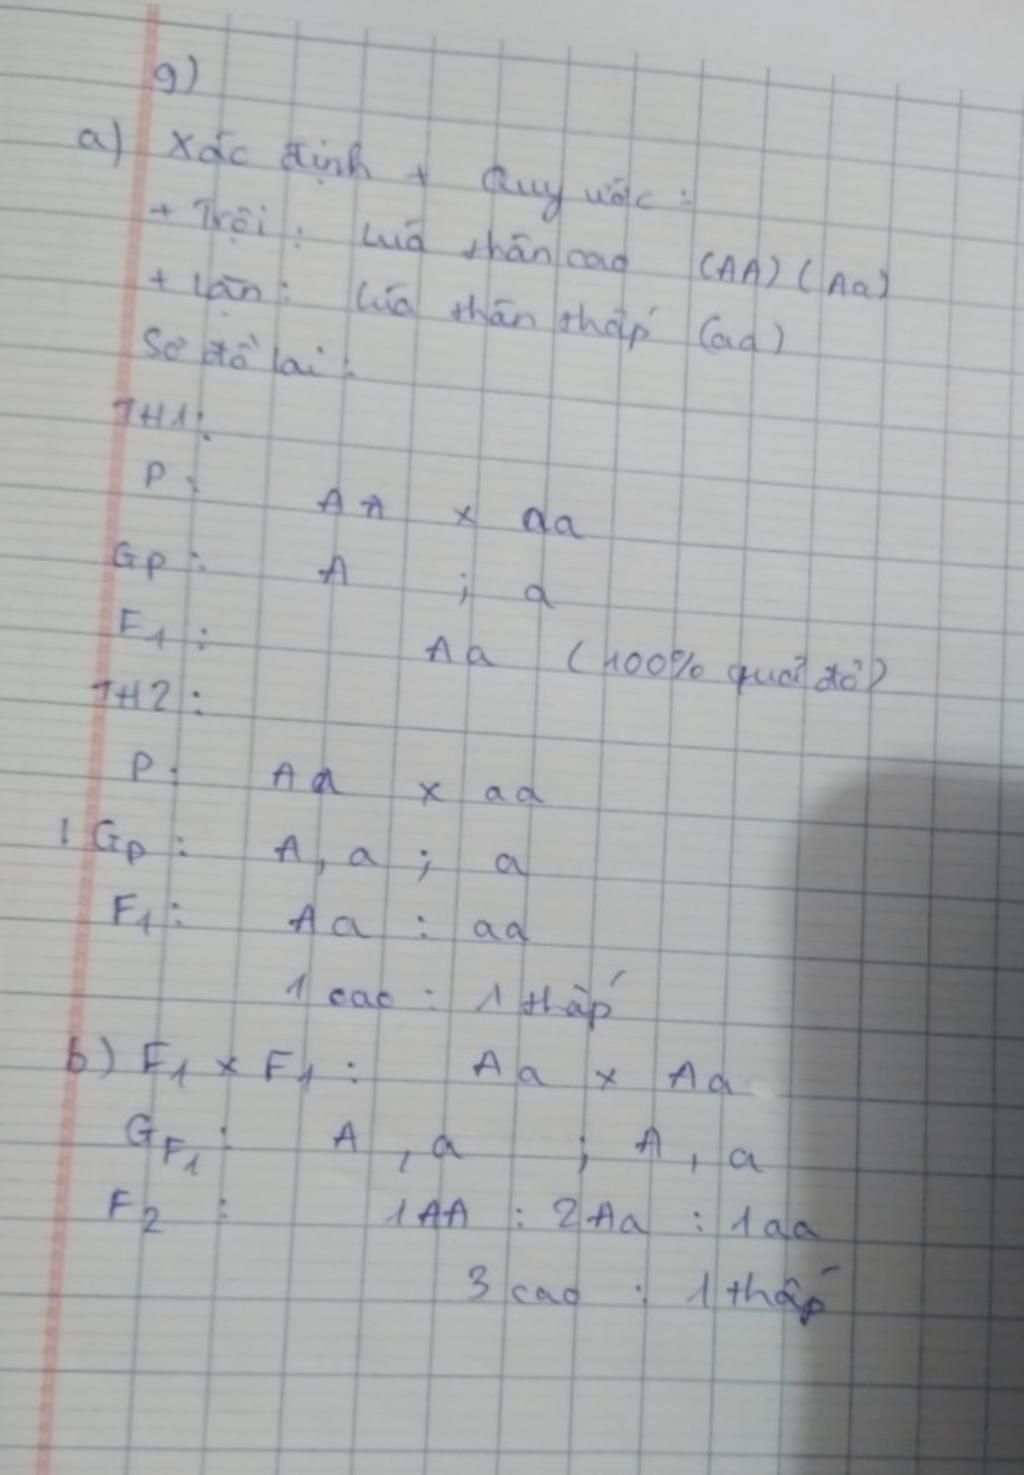 9)
a) Xác định + Quy ước:
+ Trội: Luá thân cao (AA) (Aa)
+ Lặn: Lúa thân thấp (aa)
Sơ đồ lai:
TH1:
P: AA x aa
Gp: A ; a
F1: Aa (100% quả đỏ)
TH2:
P: Aa x aa
Gp: A, a ; a
F1: Aa : aa
1 cao : 1 thấp
b) F1 x F1: Aa x Aa
GF1: A , a ; A , a
F2: 1AA : 2Aa : 1aa
3 cao : 1 thấp